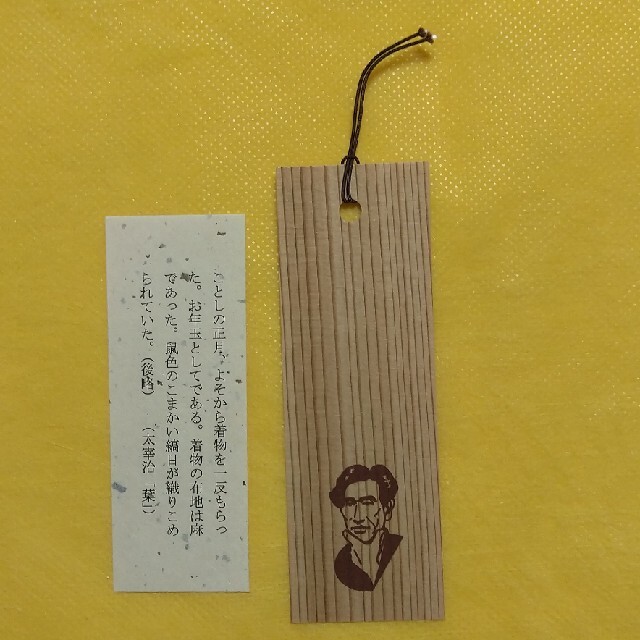 ことしの正月、よそから着物を一反もらっ
た。お年玉としてである。着物の布地は麻
であった。鼠色のこまかい縞目が織りこめ
られていた。(後略) (太宰治「葉」)